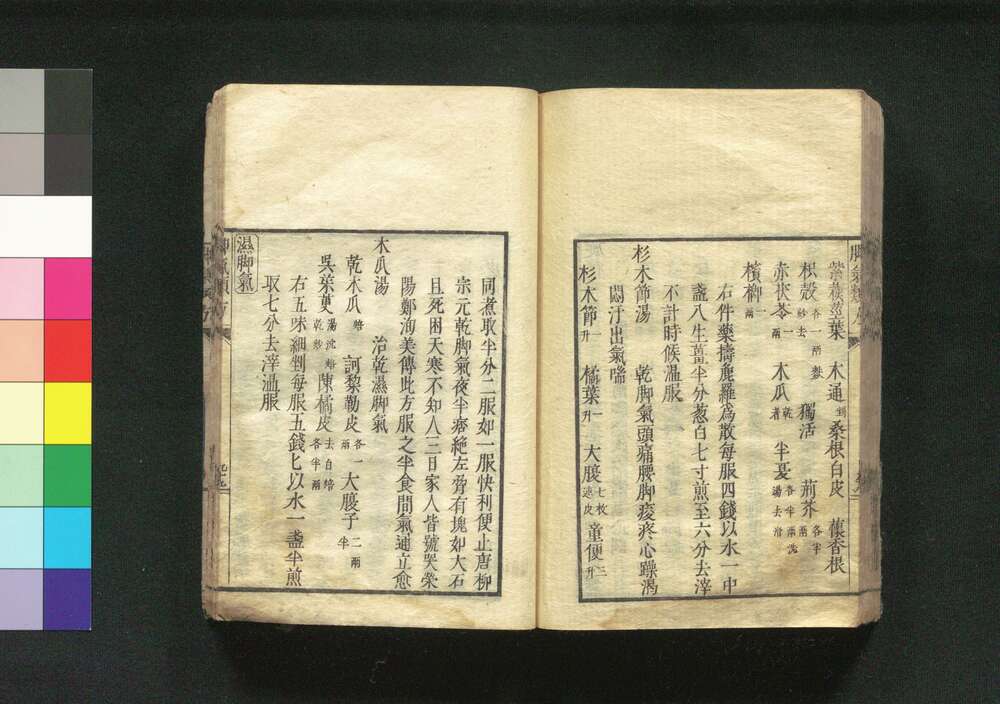 紫蘇莖葉　木通剉　桑根白皮　蘹香根
枳殼各一兩麩炒去　獨活　荊芥各半兩
赤茯苓一兩　木瓜乾者　半夏各半兩湯洗去滑
檳榔二兩
右件藥擣麄羅爲散每服四錢以水一中
盞入生薑半分葱白七寸煎至六分去滓
不計時候溫服
杉木節湯　乾脚氣頭痛腰脚痠疼心躁渴
悶汗出氣喘
杉木節一升　橘葉一升　大腹七枚連皮　童便三升
同煮取半分二服如一服快利便止唐柳
宗元乾脚氣夜半痞絶左脅有塊如大石
且死困天寒不知人三日家人皆號哭滎
陽鄭洵美傳此方服之半食間氣通立愈
木瓜湯　治乾濕脚氣
乾木瓜焙　訶黎勒皮各一兩　大腹子二兩半
吳茱萸湯沈焙乾炒　陳橘皮去白焙各半兩
右五味細剉每服五錢匕以水一盞半煎
取七分去滓溫服
濕脚氣